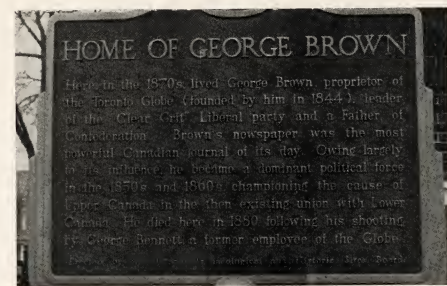 HOME OF GEORGE BROWN
Here in the 1870s lived George Brown proprietor of
the Toronto Globe (founded by him in 1844), leader
of the Clear Grit Liberal party and a Father of
Confederation. Brown's newspaper was the most
powerful Canadian journal of its day. Owing largely
to its influence, he became a dominant political force
in the 1850's and 1860's championing the cause of
Upper Canada in the then existing union with Lower
Canada. He died here in 1880 following his shooting
by George Bennett, a former employee of the Globe.
Erected by Archaeological and Historic Sites Board